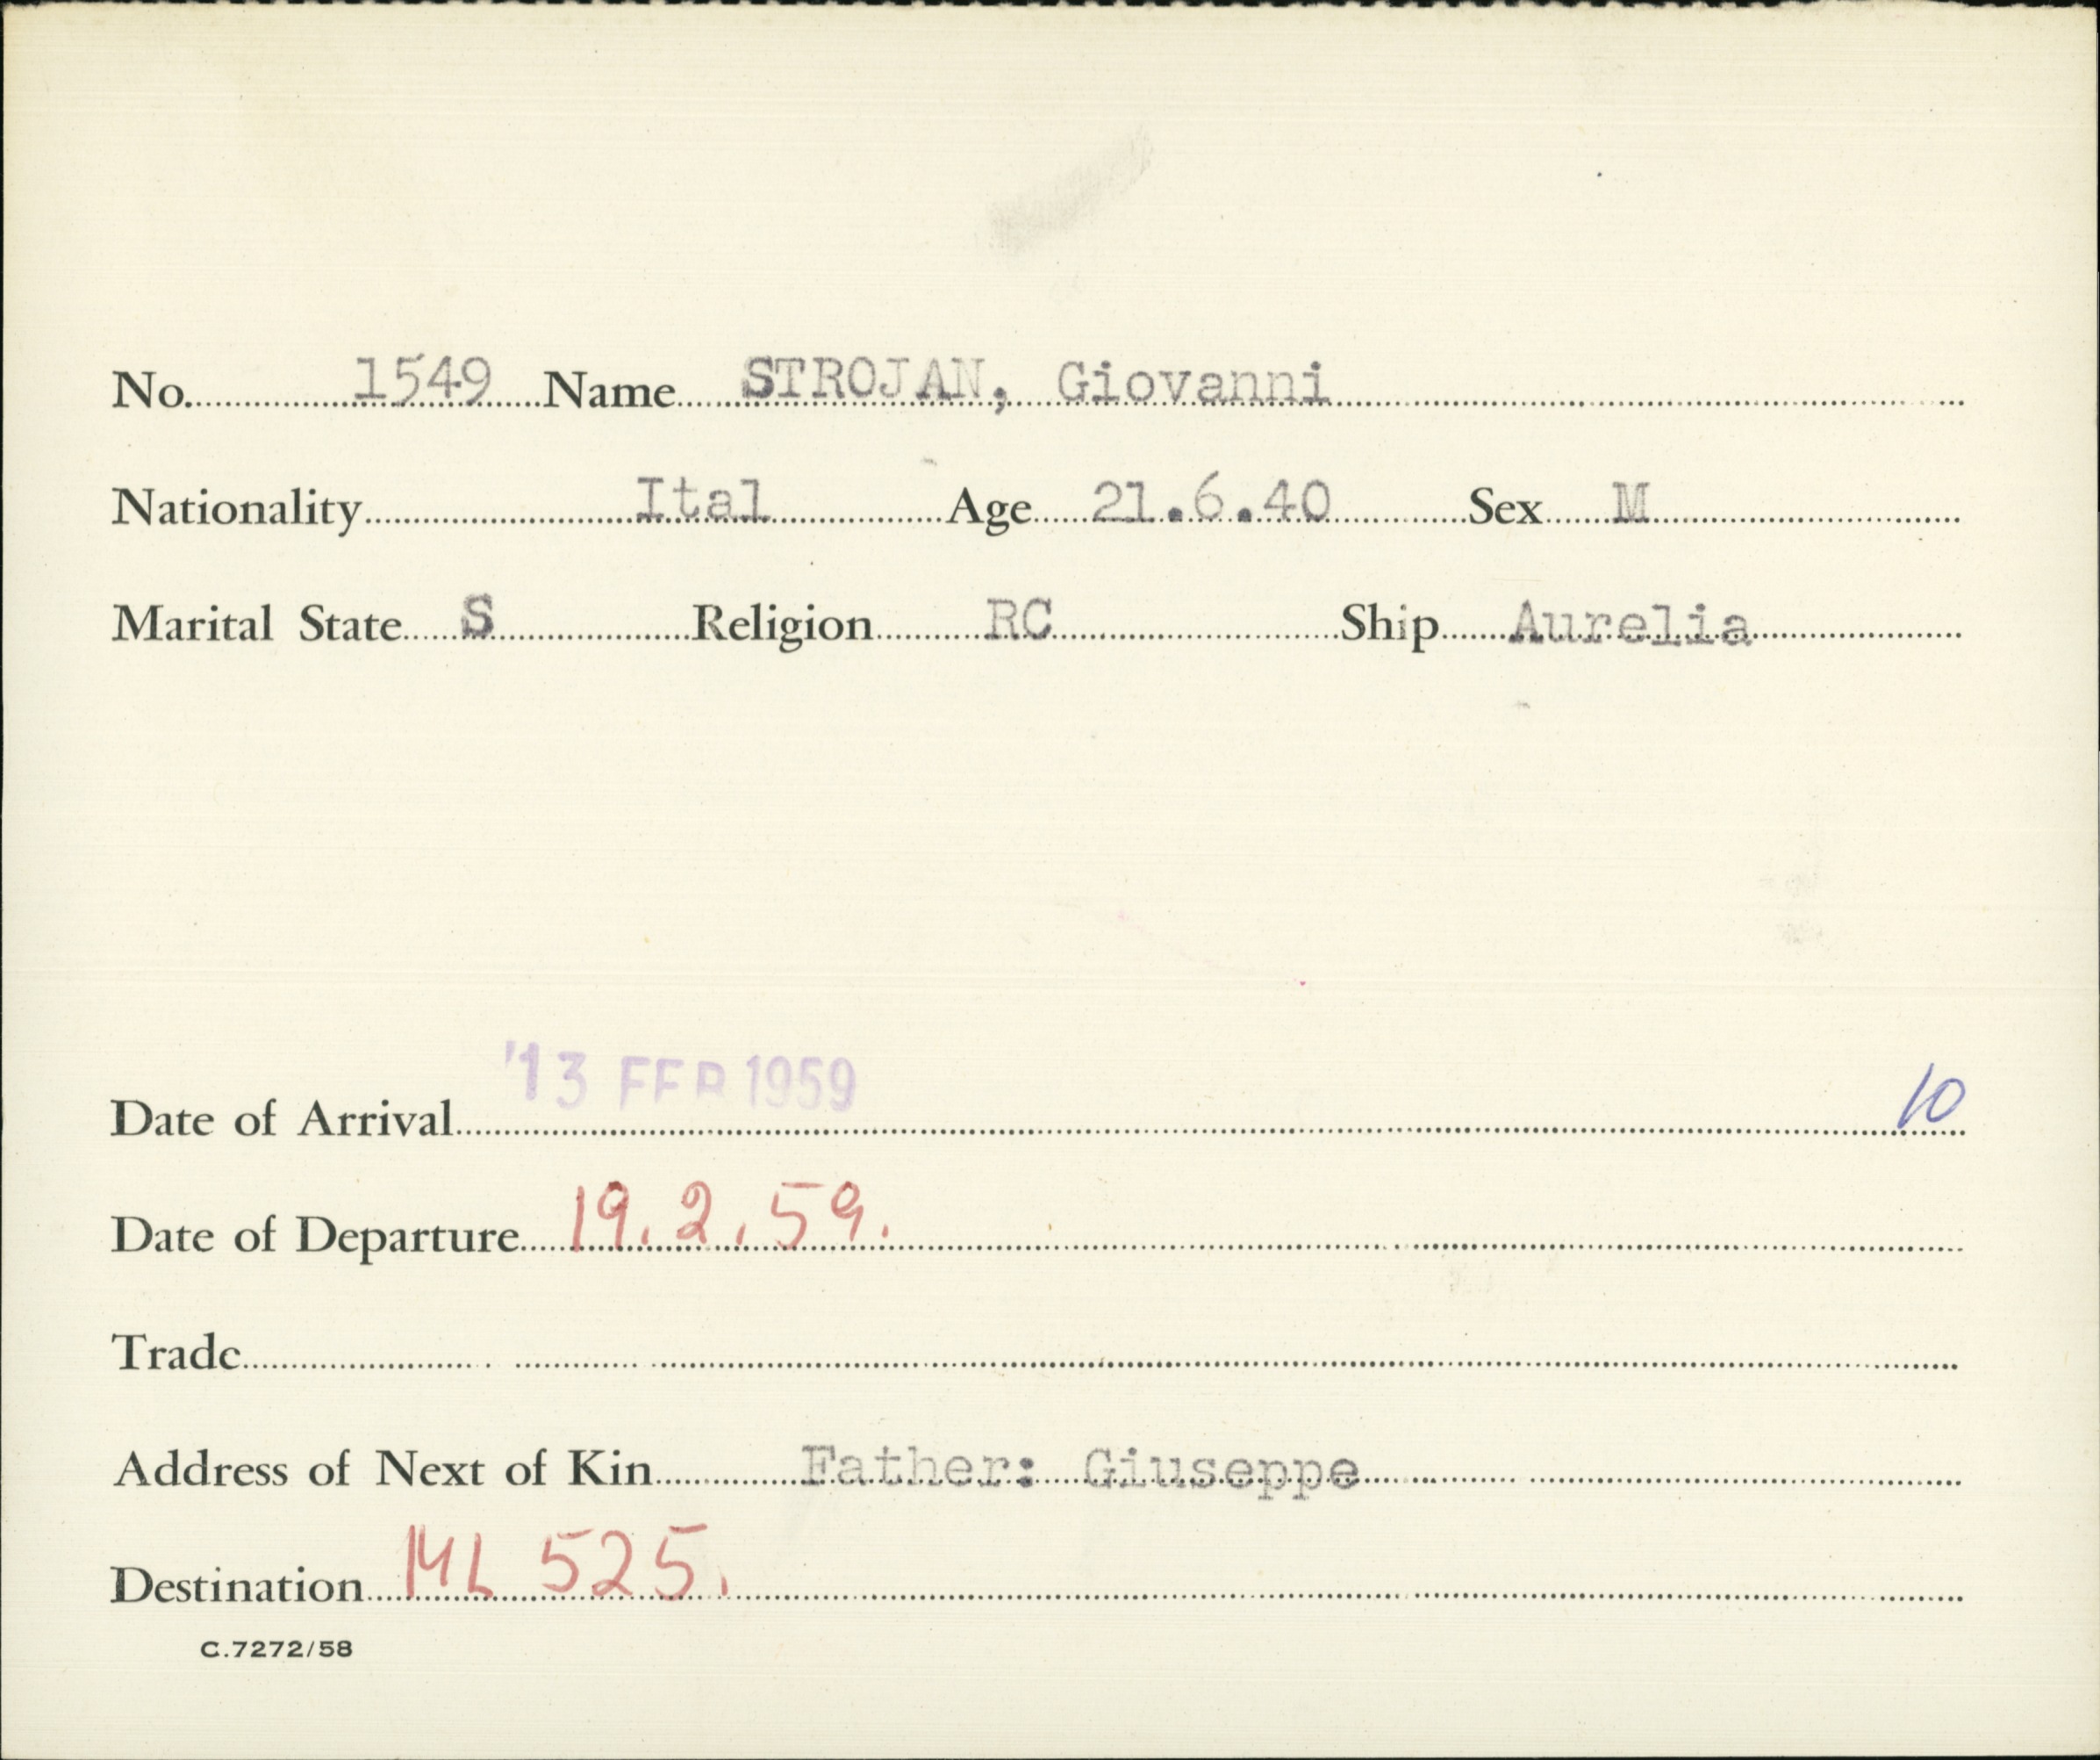 No. 1549 Name STROJAN, Giovanni
Nationality Ital Age 21.6.40 Sex M
Marital State S Religion RC Ship Aurelia
Date of Arrival 13 FEB 1959 10
Date of Departure 19.2.59.
Trade
Address of Next of Kin Father: Giuseppe
Destination ML 525.
C.7272/58